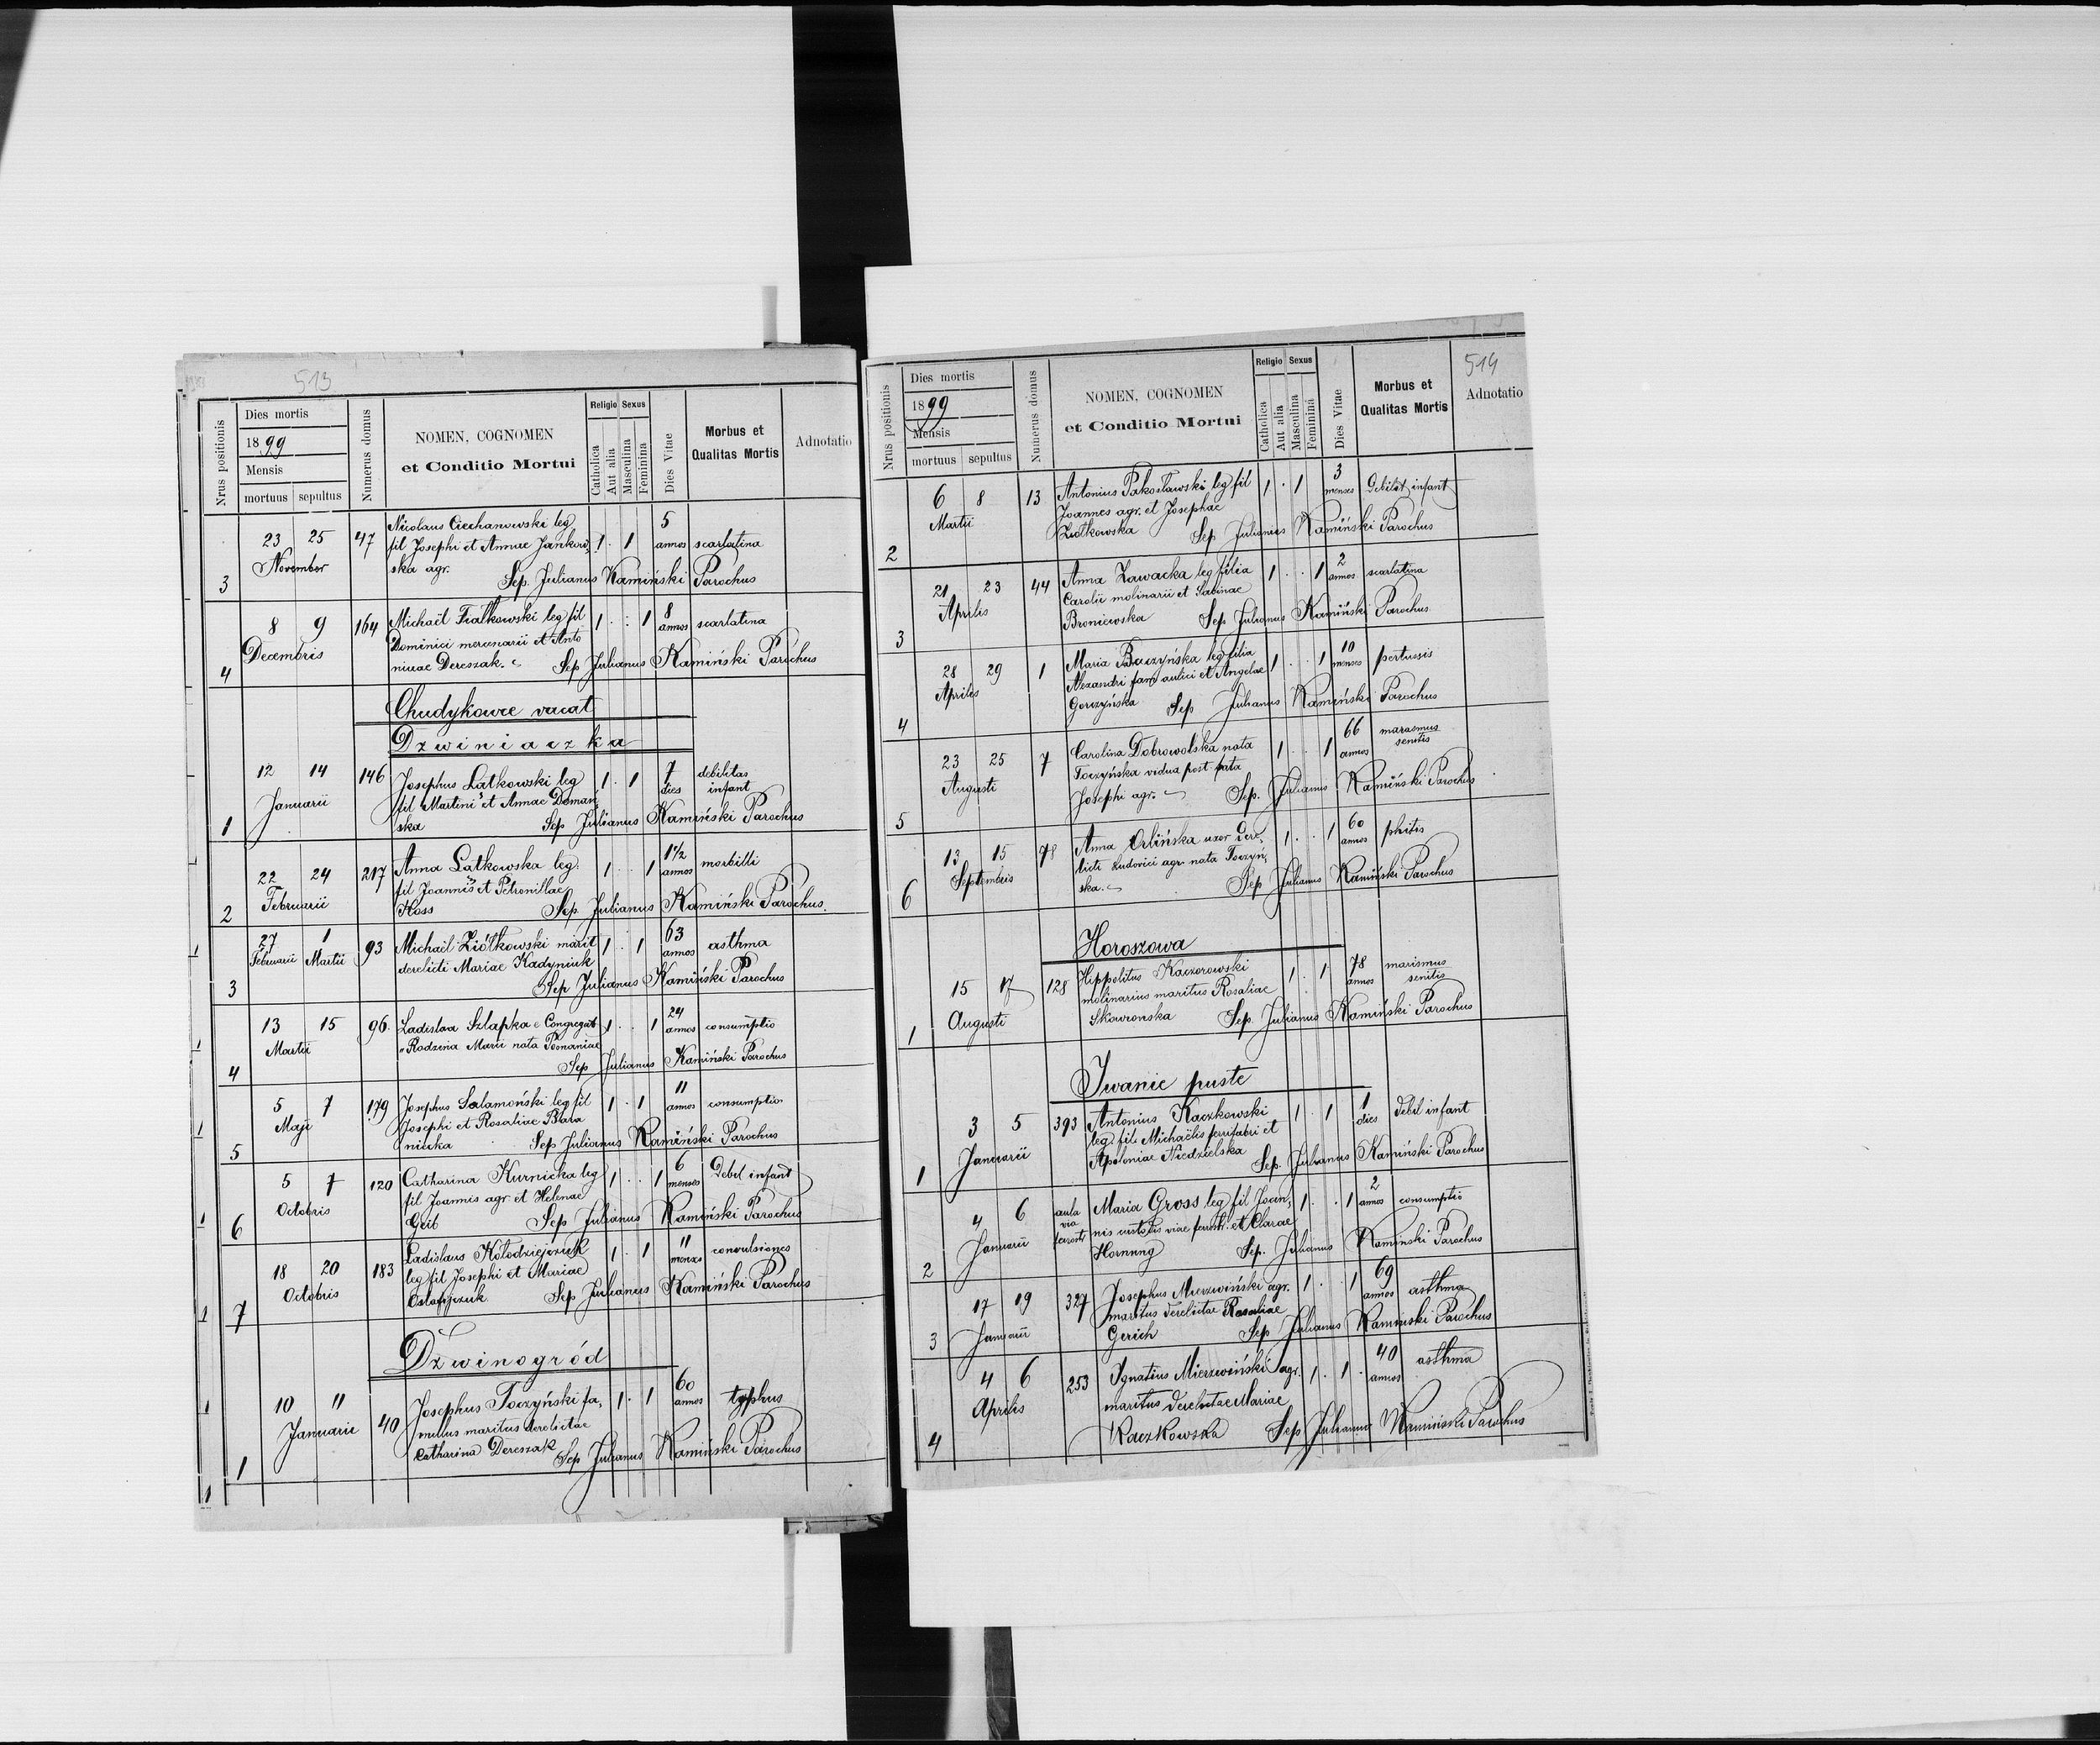 513
Nrus positionis
Dies mortis
1899
Mensis
mortuus sepultus
Numerus domus
NOMEN, COGNOMEN
et Conditio Mortui
Religio Sexus
Catholica
Aut alia
Masculina
Feminina
Dies Vitae
Morbus et
Qualitas Mortis
Adnotatio
3 23 25 47 Nicolaus Ciechanowski leg 1 . 1 5
November fil Josephi et Annae Jankow, annos scarlatina
ska agr.
Sep. Julianus Kamiński Parochus
4 8 9 164 Michaël Fiałkowski leg fil 1 . : 1 8 annos scarlatina
Decembris Dominici mercenarii et Anto
niuae Dereszak. Sep Julianus Kamiński Parochus
Chudykowce vacat
Dzwiniaczka
1 12 14 146 Josephus Latkowski leg 1 . 1 7 dies debilitas infant
Januarii fil Martini et Annae Domań
ska Sep Julianus Kamiński Parochus
2 22 24 217 Anna Latkowska leg. 1 . . 1 1 1/2 annos morbilli
Februarii fil Joannis et Petronillae
Koss Sep Julianus Kamiński Parochus.
3 27 1 93 Michaël Ziółkowski marit 1 . 1 63 annos asthma
Februarii Martii derelicti Mariae Kadyniuk
Sep Julianus Kamiński Parochus
4 13 15 96. Ladislaa Szlapka e Congregat 1 . . 1 24 annos consumptio
Martii "Rodzina Marii nata Posnaniae
Sep Julianus Kamiński Parochus
5 5 7 179 Josephus Salamoński leg fil 1 . 1 11 annos consumptio
Maji Josephi et Rosaliae Bara
niecka Sep Julianus Kamiński Parochus
6 5 7 120 Catharina Kurnicka leg 1 . . 1 6 menses Debil infant
Octobris fil Joannis agr et Helenae
Geib Sep Julianus Kamiński Parochus
7 18 20 183 Ladislaus Kołodziejczuk 1 . 1 11 menses convulsiones
Octobris leg fil Josephi et Mariae
Sep Julianus Kamiński Parochus
Dźwinogród
1 10 11 40 Josephus Toczyński fa, 1 . 1 60 annos typhus
Januarii mullus maritus derelictae
Catharina Dereszak Sep Julianus Kamiński Parochus
514
Nrus positionis
Dies mortis
1899
Mensis
mortuus sepultus
Numerus domus
NOMEN, COGNOMEN
et Conditio Mortui
Religio Sexus
Catholica
Aut alia
Masculina
Feminina
Dies Vitae
Morbus et
Qualitas Mortis
Adnotatio
2 6 8 13 Antonius Pakosławski leg fil 1 . 1 3 menses Debilit infant
Martii Joannes agr. et Josephae
Ziółkowska Sep Julianus Kamiński Parochus
3 21 23 44 Anna Zawacka leg filia 1 . . 1 2 annos scarlatina
Aprilis Carolii molinarii et Sabinae
Broniewska Sep Julianus Kamiński Parochus
4 28 29 1 Maria Buczyńska leg filia 1 . . 1 10 menses pertussis
Aprilis Alexandri fam aulici et Angelae
Gorczyńska Sep Julianus Kamiński Parochus
5 23 25 7 Carolina Dobrowolska nata 1 . . 1 66 annos marasmus senilis
Augusti Toczyńska vidua post fata
Josephi agr. Sep. Julianus Kamiński Parochus
6 13 15 78 Anna Orlińska uxor dere, 1 . . 1 60 annos phitis
Septembris licti Ludovici agr. nata Toczyń,
ska. Sep Julianus Kamiński Parochus
Horoszowa
1 15 17 128 Hippolitus Kaczorowski 1 . 1 78 annos marismus senilis
Augusti molinarius maritus Rosaliae
Skowronska Sep. Julianus Kamiński Parochus
Iwanie puste
1 3 5 393 Antonius Kaczkowski 1 . 1 1 dies debil infant
Januarii leg. fil. Michaëlis ferrifabri et
Apoloniae Niedzielska Sep. Julianus Kamiński Parochus
2 4 6 Maria Gross leg fil Joan, 1 . . 1 2 annos consumptio
Januarii nis custodis viae ferrat. et Clarae
Hornung Sep. Julianus Kamiński Parochus
3 17 19 327 Josephus Mierzwiński agr. 1 . . 1 69 annos asthma
Januarii maritus derelictae Rosaliae
Gerich Sep Julianus Kamiński Parochus
4 4 6 253 Ignatius Mierzwiński agr. 1 . 1 . 40 annos asthma
Aprilis maritus derelictae Mariae
Kaczkowska Sep Julianus Kamiński Parochus